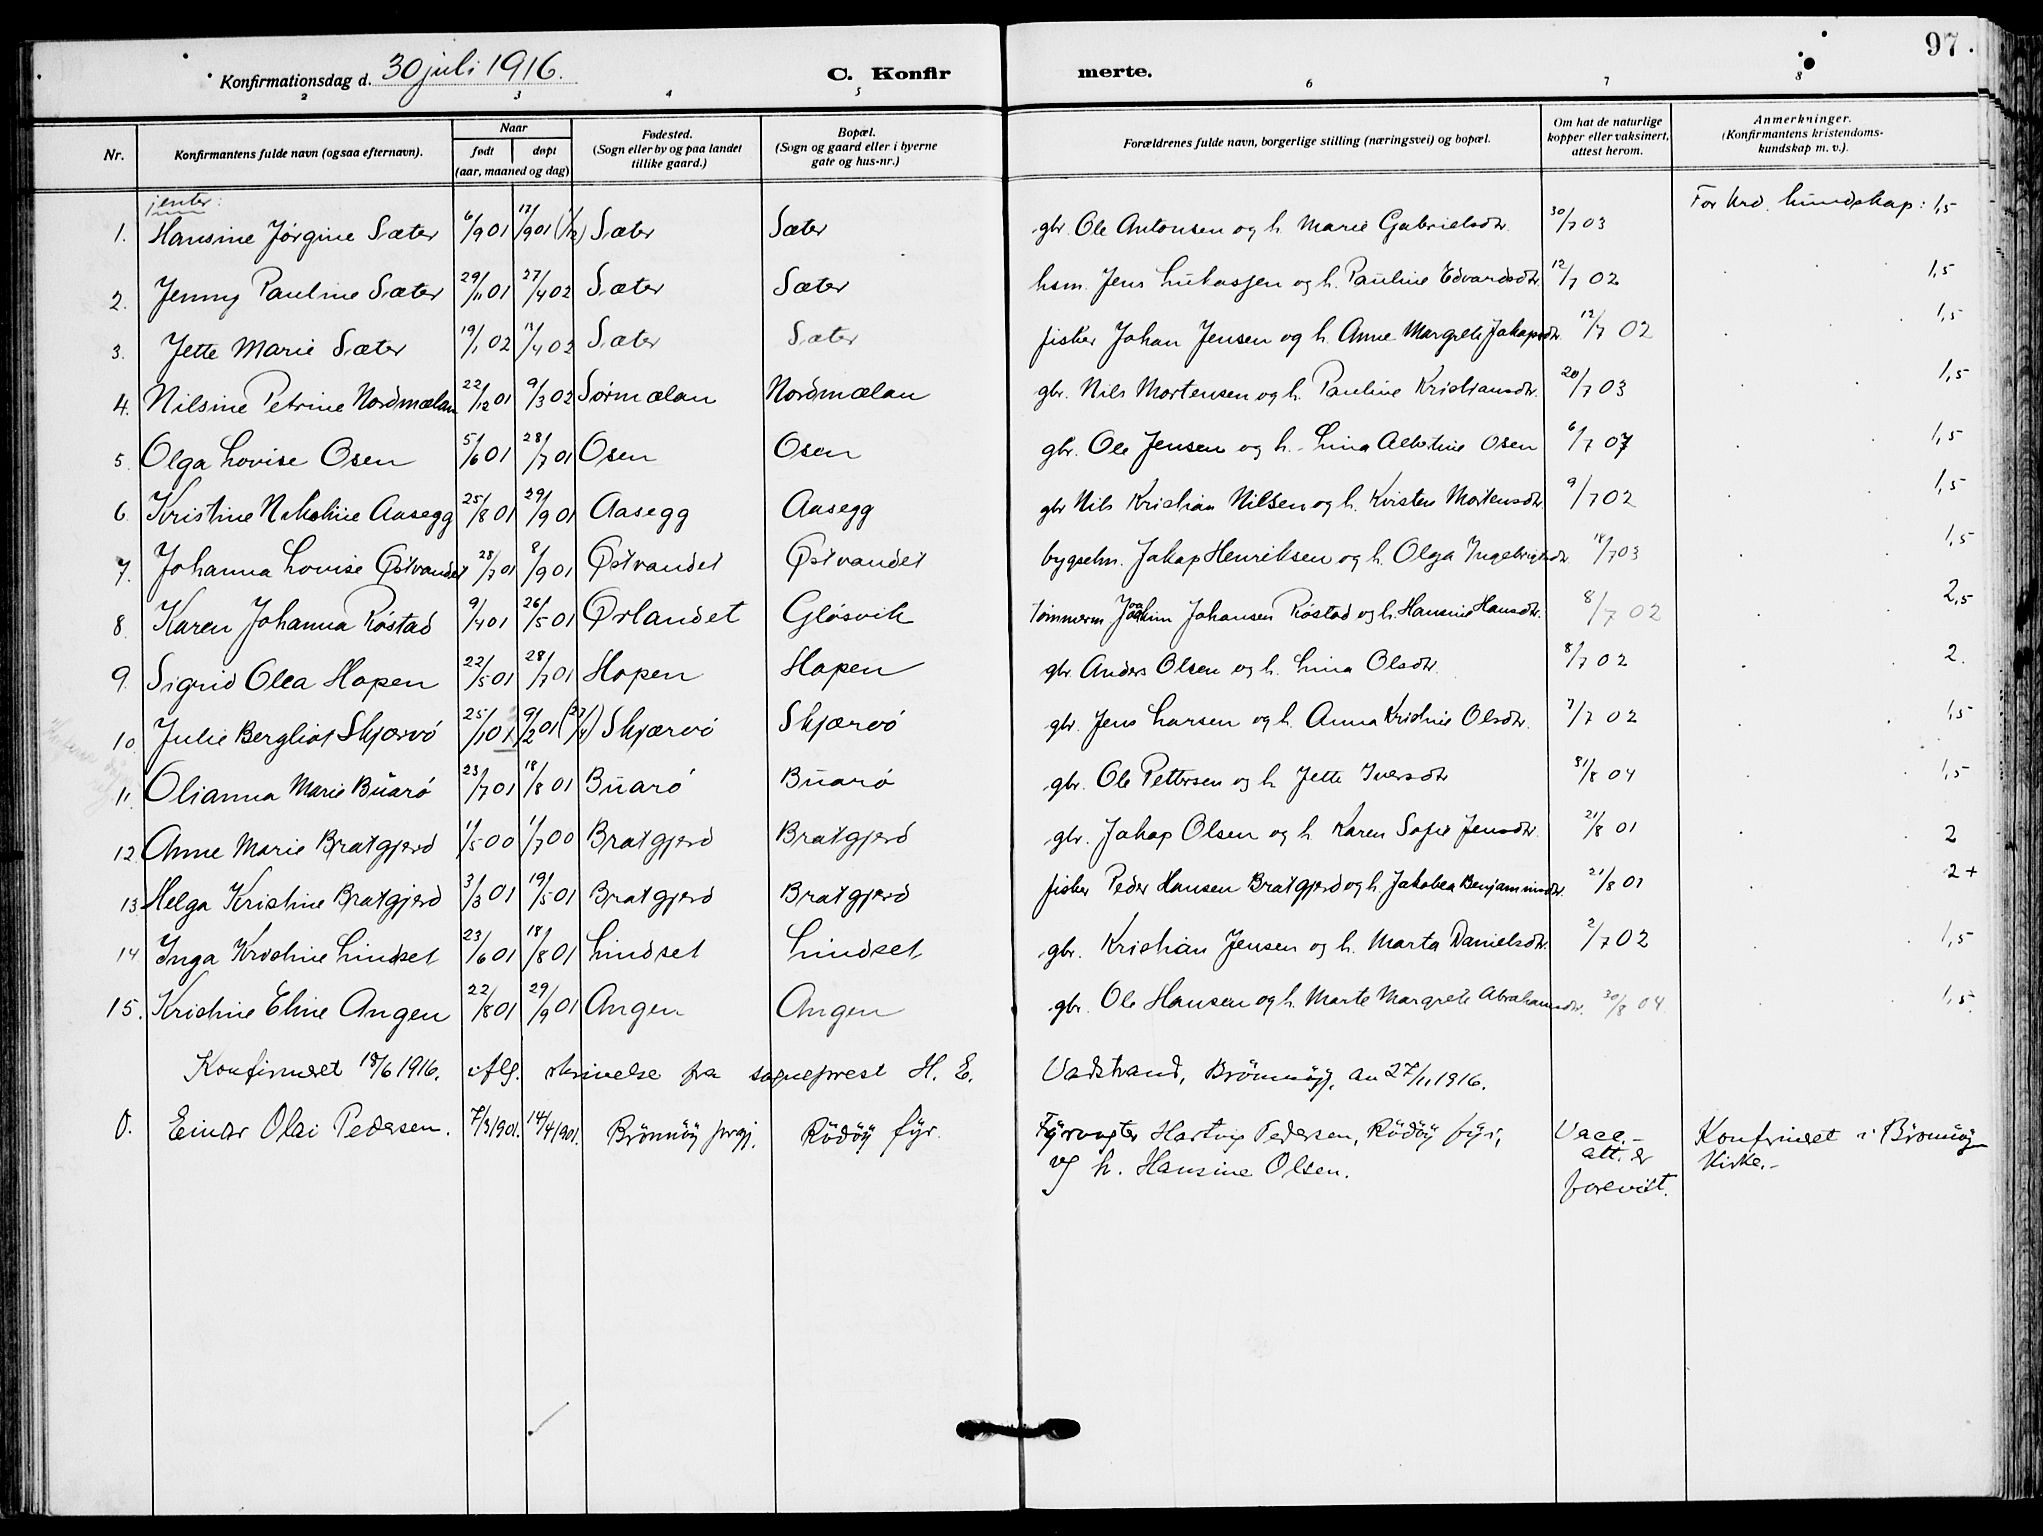 97.
Konfirmationsdag d. 30 juli 1916. C. Konfir merte.
2 3 4 5 6 7 8
Nr. Konfirmantens fulde navn (ogsaa efternavn). Naar født døpt (aar, maaned og dag) Fødested. (Sogn eller by og paa landet tillike gaard.) Bopæl. (Sogn og gaard eller i byerne gate og hus-nr.) Forældrenes fulde navn, borgerlige stilling (næringsvei) og bopæl. Om hat de naturlige kopper eller vaksinert, attest herom. Anmerkninger. (Konfirmantens kristendoms-kundskap m. v.).
jenter:
1. Hansine Jørgine Sæter 6/9 01 17/9 01 Sæter Sæter gbr. Ole Antonsen og h. Marie Gabrielsdtr. 30/7 03 For krd. kundskap: 1,5
2. Jenny Pauline Sæter 29/11 01 27/4 02 Sæter Sæter hsm. Jens Lukassen og h. Pauline Edvardsdtr. 12/7 02 1,5
3. Jette Marie Sæter 19/1 02 13/4 02 Sæter Sæter fisker Johan Jensen og h. Anne Margrete Jakapsdtr. 12/7 02 1,5
4. Nilsine Petrine Nordmælan 22/12 01 9/3 02 Sørmælan Nordmælan gbr. Nils Mortensen og h. Pauline Kristiansdtr. 20/7 03 1,5
5. Olga Lovise Osen 5/6 01 28/7 01 Osen Osen gbr. Ole Jensen og h. Lina Albertine Osen 6/7 07 1,5
6. Kristine Nikoline Aasegg 25/8 01 29/9 01 Aasegg Aasegg gbr Nils Kristian Nilsen og h. Kristen Mortensdtr. 9/7 02 1,5
7. Johanna Lovise Østvandet 28/7 01 8/9 01 Østvandet Østvandet bygselm. Jakap Henriksen og h. Olga Ingebrigtsdtr. 18/7 03 1,5
8. Karen Johanna Røstad 9/4 01 26/5 01 Ørlandet Gløsvik tømmerm Joakim Johansen Røstad og h. Hansine Hansdtr. 8/7 02 2,5
9. Sigrid Olea Hopen 22/5 01 28/7 01 Hopen Hopen gbr. Anders Olsen og h. Lina Olsdtr. 8/7 02 2.
10. Julie Bergliot Skjærvø 25/10 1 9/2 01 (27/4) Skjærvø Skjærvø gbr. Jens Larsen og h. Anna Kristine Olsdtr. 7/7 02 1,5
11. Olianna Marie Buarø 23/7 01 18/8 01 Buarø Buarø gbr. Ole Pettersen og h Jette Iversdtr 31/8 04 1,5
12. Anne Marie Bratgjerd 11/5 00 1/7 00 Bratgjerd Bratgjerd gbr. Jakap Olsen og h Karen Sofie Jensdtr. 21/8 01 2
13. Helga Kristine Bratgjerd 3/3 01 19/5 01 Bratgjerd Bratgjerd fisker Peder Hansen Bratgjerd og h. Jakobea Benjaminsdtr. 21/8 01 2+
14 Inga Kristine Lindset 23/6 01 18/8 01 Lindset Lindset gbr. Kristian Jensen og h. Marta Danielsdtr. 2/7 02 1,5
15. Kristine Eline Angen 22/8 01 29/9 01 Angen Angen gbr. Ole Hansen og h. Marte Margrete Abrahamsdtr. 30/8 04 1,5
Konfirmeret 18/6 1916. iflg. skrivelse fra sogneprest H. E. Vadstrand, Brönnöy, au 27/11 1916.
0. Einar Olai Pedersen. 7/3 1901. 14/4 1901. Brönnöy prgj. Rödöy fyr. Fyrvogter Hartvig Pedersen, Rödöy fyr, og h. Hansine Olsen. Vacc.- att. er forevist. Konfirmeret i Brönnöy Kirke.-